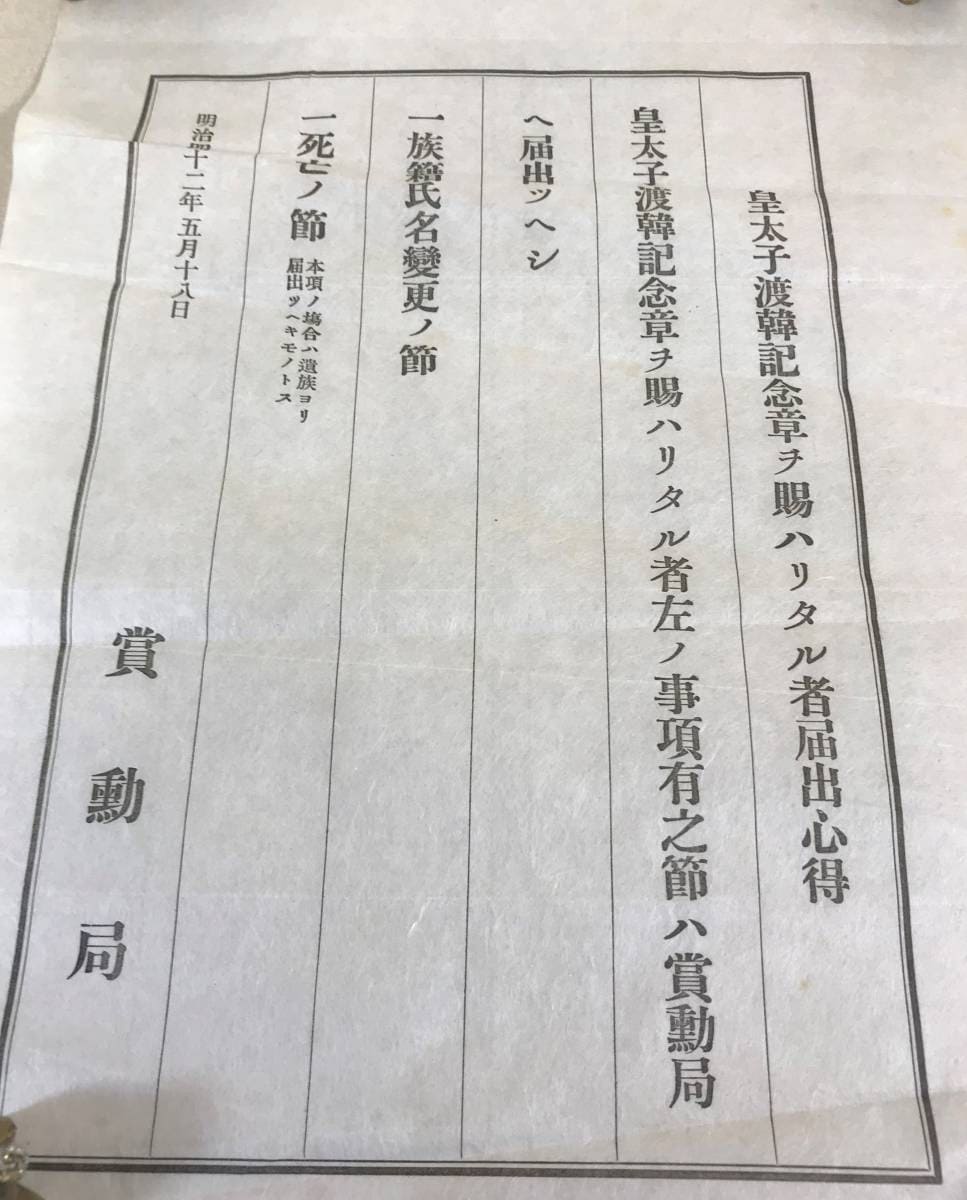 皇太子渡韓記念章ヲ賜ハリタル者届出心得
皇太子渡韓記念章ヲ賜ハリタル者左ノ事項有之節ハ賞勳局
ヘ届出ツヘシ
一族籍氏名變更ノ節
一死亡ノ節
本項ノ塲合ハ遺族ヨリ
届出ツヘキモノトス
明治四十二年五月十八日
賞勳局